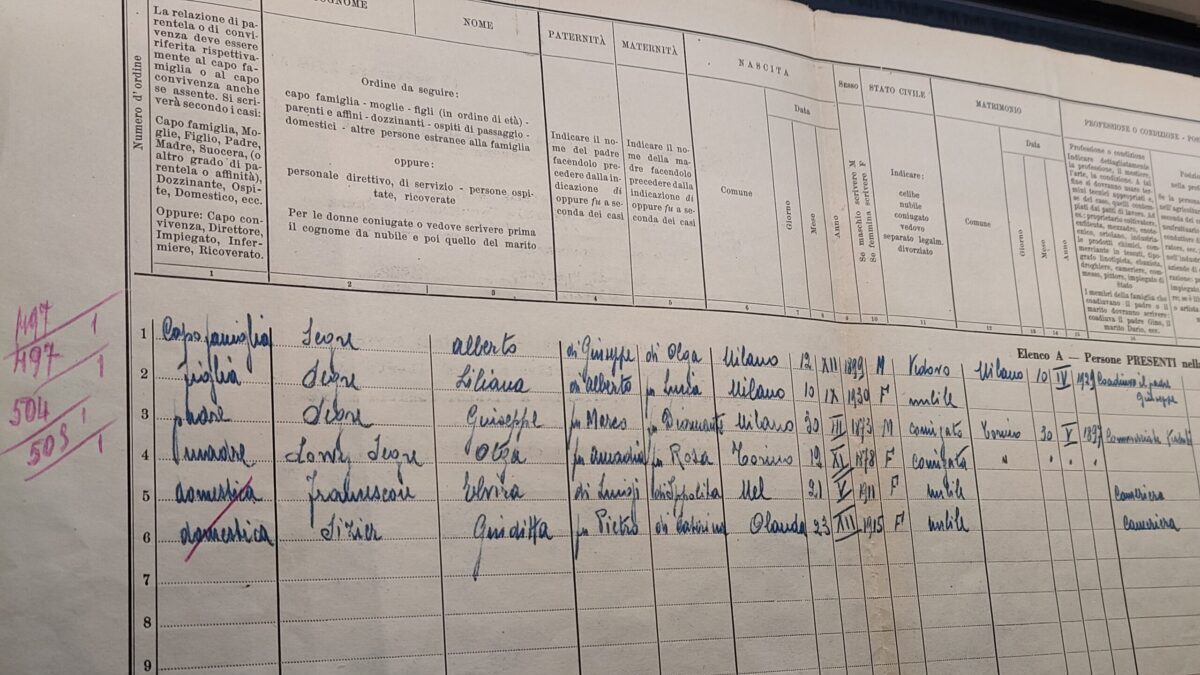 COGNOME
NOME
PATERNITÀ
MATERNITÀ
NASCITA
SESSO
STATO CIVILE
MATRIMONIO
PROFESSIONE O CONDIZIONE - POS
Numero d'ordine
La relazione di pa-
rentela o di convi-
venza deve essere
riferita rispettiva-
mente al capo fa-
miglia o al capo
convivenza anche
se assente. Si scri-
verà secondo i casi:
Capo famiglia, Mo-
glie, Figlio, Padre,
Madre, Suocera, (o
altro grado di pa-
rentela o affinità),
Dozzinante, Ospi-
te, Domestico, ecc.
Oppure: Capo con-
vivenza, Direttore,
Impiegato, Infer-
miere, Ricoverato.
Ordine da seguire:
capo famiglia - moglie - figli (in ordine di età) -
parenti e affini - dozzinanti - ospiti di passaggio -
domestici - altre persone estranee alla famiglia
oppure:
personale direttivo, di servizio - persone ospi-
tate, ricoverate
Per le donne coniugate o vedove scrivere prima
il cognome da nubile e poi quello del marito
Indicare il no-
me del padre
facendolo pre-
cedere dalla in-
dicazione di
oppure fu a se-
conda dei casi
Indicare il no-
me della ma-
dre facendolo
precedere dalla
indicazione di
oppure fu a se-
conda dei casi
Comune
Data
Giorno
Mese
Anno
Se maschio scrivere M
Se femmina scrivere F
Indicare:
celibe
nubile
coniugato
vedovo
separato legalm.
divorziato
Comune
Data
Giorno
Mese
Anno
Professione o condizione
Indicare dettagliatamente
la professione, il mestiere,
l'arte, la condizione. A tal
fine si dovranno usare ter-
mini tecnici appropriati e,
se del caso, quelli contem-
plati dai patti di lavoro. Ad
I membri della famiglia che
coadiuvano il padre o il
marito dovranno scrivere:
coadiuva il padre Gino, il
marito Dario, ecc.
1 2 3 4 5 6 7 8 9 10 11 12 13 14 15
Elenco A — Persone PRESENTI nella
497 1
497 1
504 1
505 1
1 Capo famiglia Segre Alberto di Giuseppe di Olga Milano 12 XII 1899 M Vedovo Milano 10 IV 1929 Coadiuva il padre Giuseppe
2 figlia Segre Liliana di Alberto fu Lucia Milano 10 IX 1930 F nubile
3 padre Segre Giuseppe fu Marco Milano 30 III 1873 M coniugato Torino 30 V 1897
4 madre Segre Olga fu Amadio fu Rosa Torino 12 XI 1878 F coniugata " " " "
5 domestica Elvira di Luigi di Ippolita Mel 21 V 1911 F nubile Cameriera
6 domestica Giuditta fu Pietro di Caterina Olanda 23 XII 1915 F nubile Cameriera
7
8
9